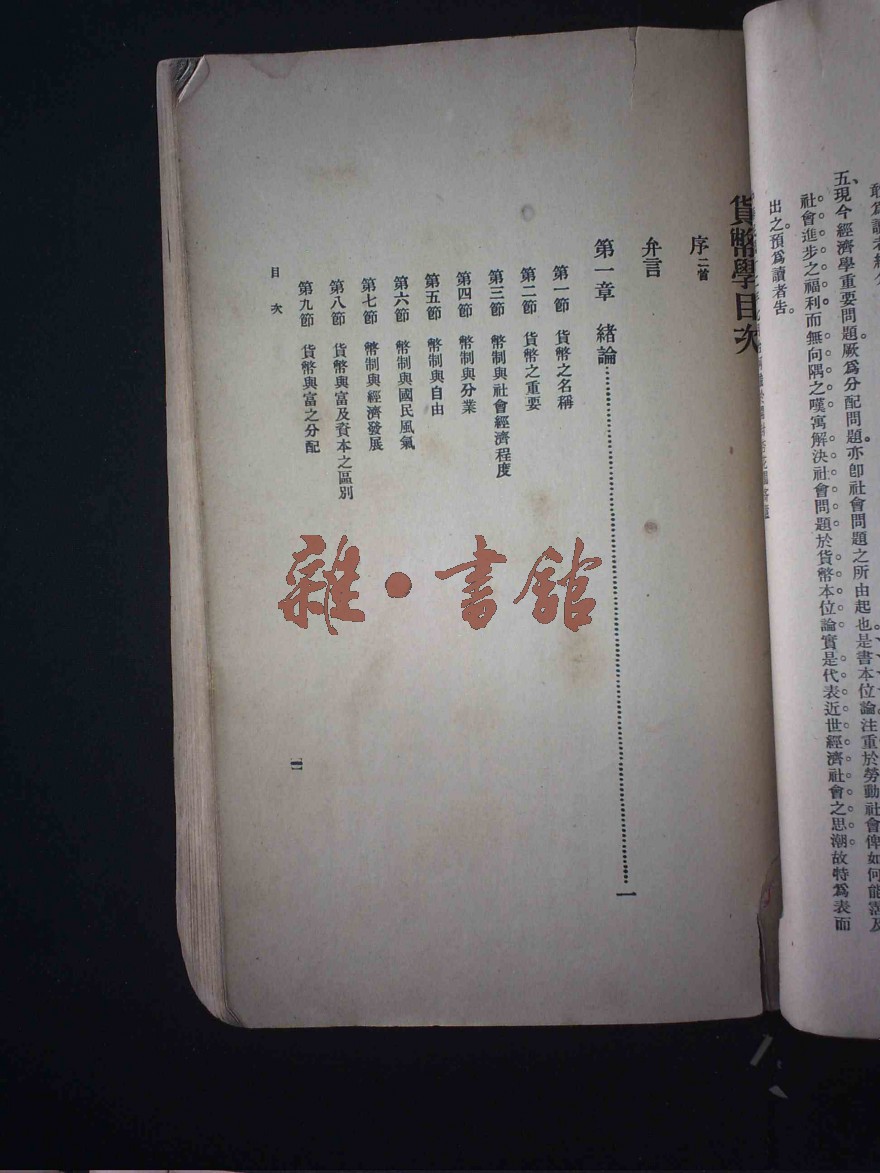 五、現今經濟學重要問題。厥爲分配問題。亦卽社會問題之所由起也。是書本位論。注重於勞動社會。俾如何能
社會進步之福利而無向隅之嘆寓解決社會問題於貨幣本位論實是代表近世經濟社會之思潮故特爲表而
出之。預爲讀者告。
貨幣學目次
序二首
弁言
第一章　緒論……一
第一節　貨幣之名稱
第二節　貨幣之重要
第三節　幣制與社會經濟程度
第四節　幣制與分業
第五節　幣制與自由
第六節　幣制與國民風氣
第七節　幣制與經濟發展
第八節　貨幣與富及資本之區別
第九節　貨幣與富之分配
目次
一
雜·書館